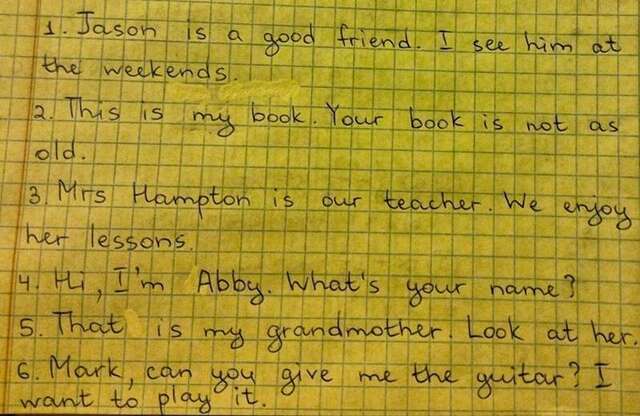 1. Jason is a good friend. I see him at
the weekends.
2. This is my book. Your book is not as
old.
3. Mrs Hampton is our teacher. We enjoy
her lessons.
4. Hi, I'm Abby. What's your name?
5. That is my grandmother. Look at her.
6. Mark, can you give me the guitar? I
want to play it.